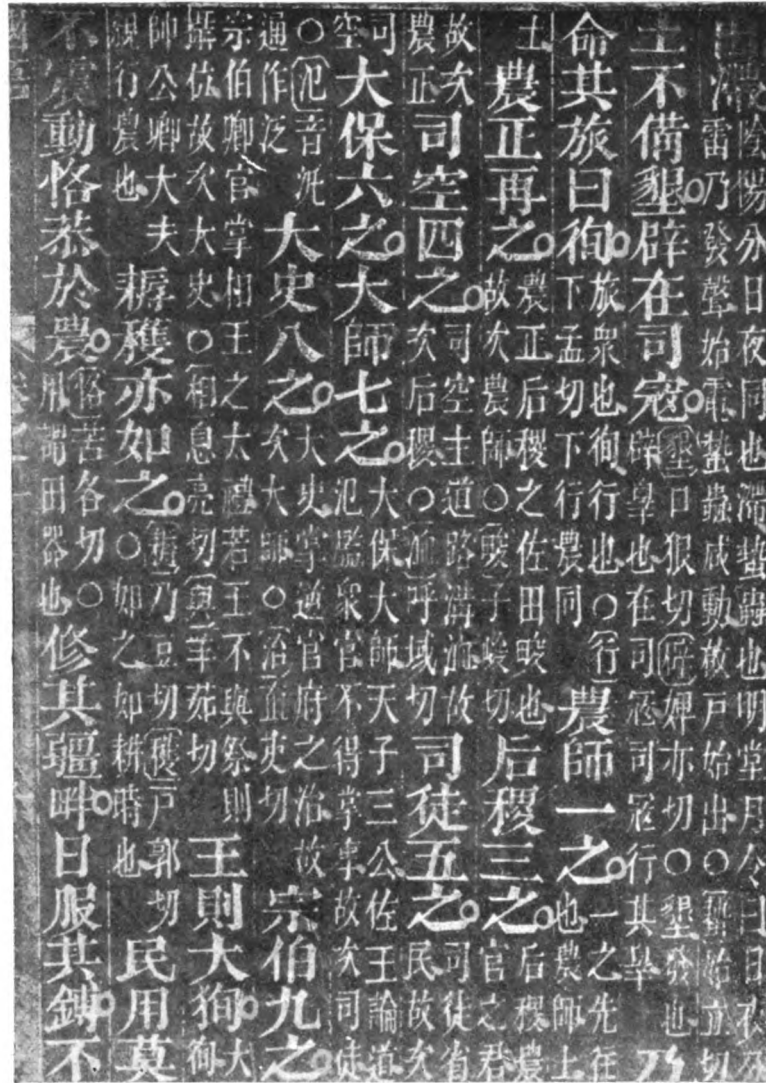 出滯陰陽分日夜同也滯蟄蟲也明堂月令曰日夜分雷乃發聲始電蟄蟲咸動啟戶始出○蟄始立切
土不備墾辟在司寇墾口狠切辟婢亦切○墾發也辟辠也在司寇司寇行其辠乃
命其旅曰徇旅衆也徇行也○行下孟切下行農同農師一之一之先往也農師上
士農正再之農正后稷之佐田畯也故次農師○畯子峻切后稷三之后稷農官之君
故次農正司空四之司空主道路溝洫故次后稷○洫呼域切司徒五之司徒省民故次
司空大保六之大師七之大保大師天子三公佐王論道氾濫衆官不得掌事故次司徒
○氾音汎通作泛大史八之大史掌逆官府之治故次大師○治直吏切宗伯九之
宗伯卿官掌相王之太禮若王不與祭則攝位故次大史○相息亮切與羊茹切王則大徇大徇
帥公卿大夫親行農也耨穫亦如之耨乃豆切穫戶郭切○如之如耕時也民用莫
不震動恪恭於農恪苦各切○用謂田器也修其疆畔日服其鎛不